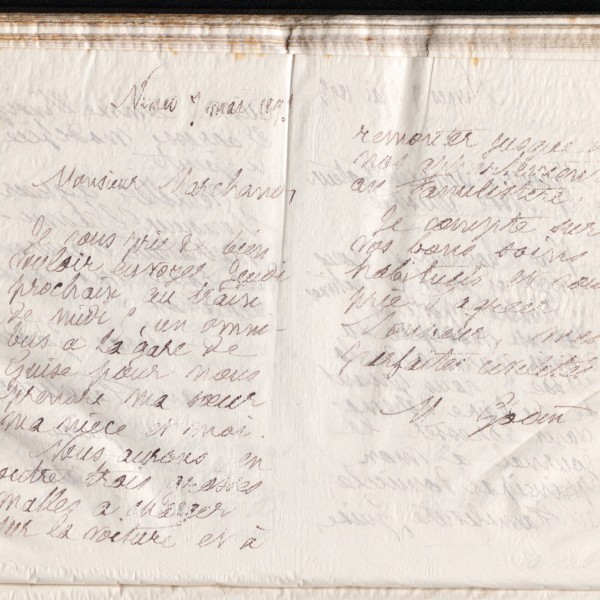 Nîmes 7 mai 189
Monsieur Marchand,
Je vous prie de bien
vouloir envoyer Jeudi
prochain, au train
de midi, un omni-
bus à la gare de
Guise pour nous
prendre ma sœur
ma nièce et moi.
Nous aurons en
outre trois grosses
malles à charger
sur la voiture et à
remonter jusque
nos appartements
au Familistère.
Je compte sur
vos bons soins
habituels et vous
prie d'agréer
Monsieur, mes
parfaites civilités
M. Godin